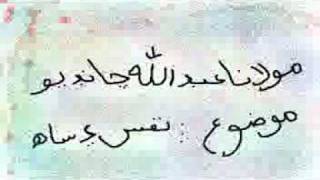 مولانا عبد الله چانڊيو
موضوع : نفس ۽ ساھ